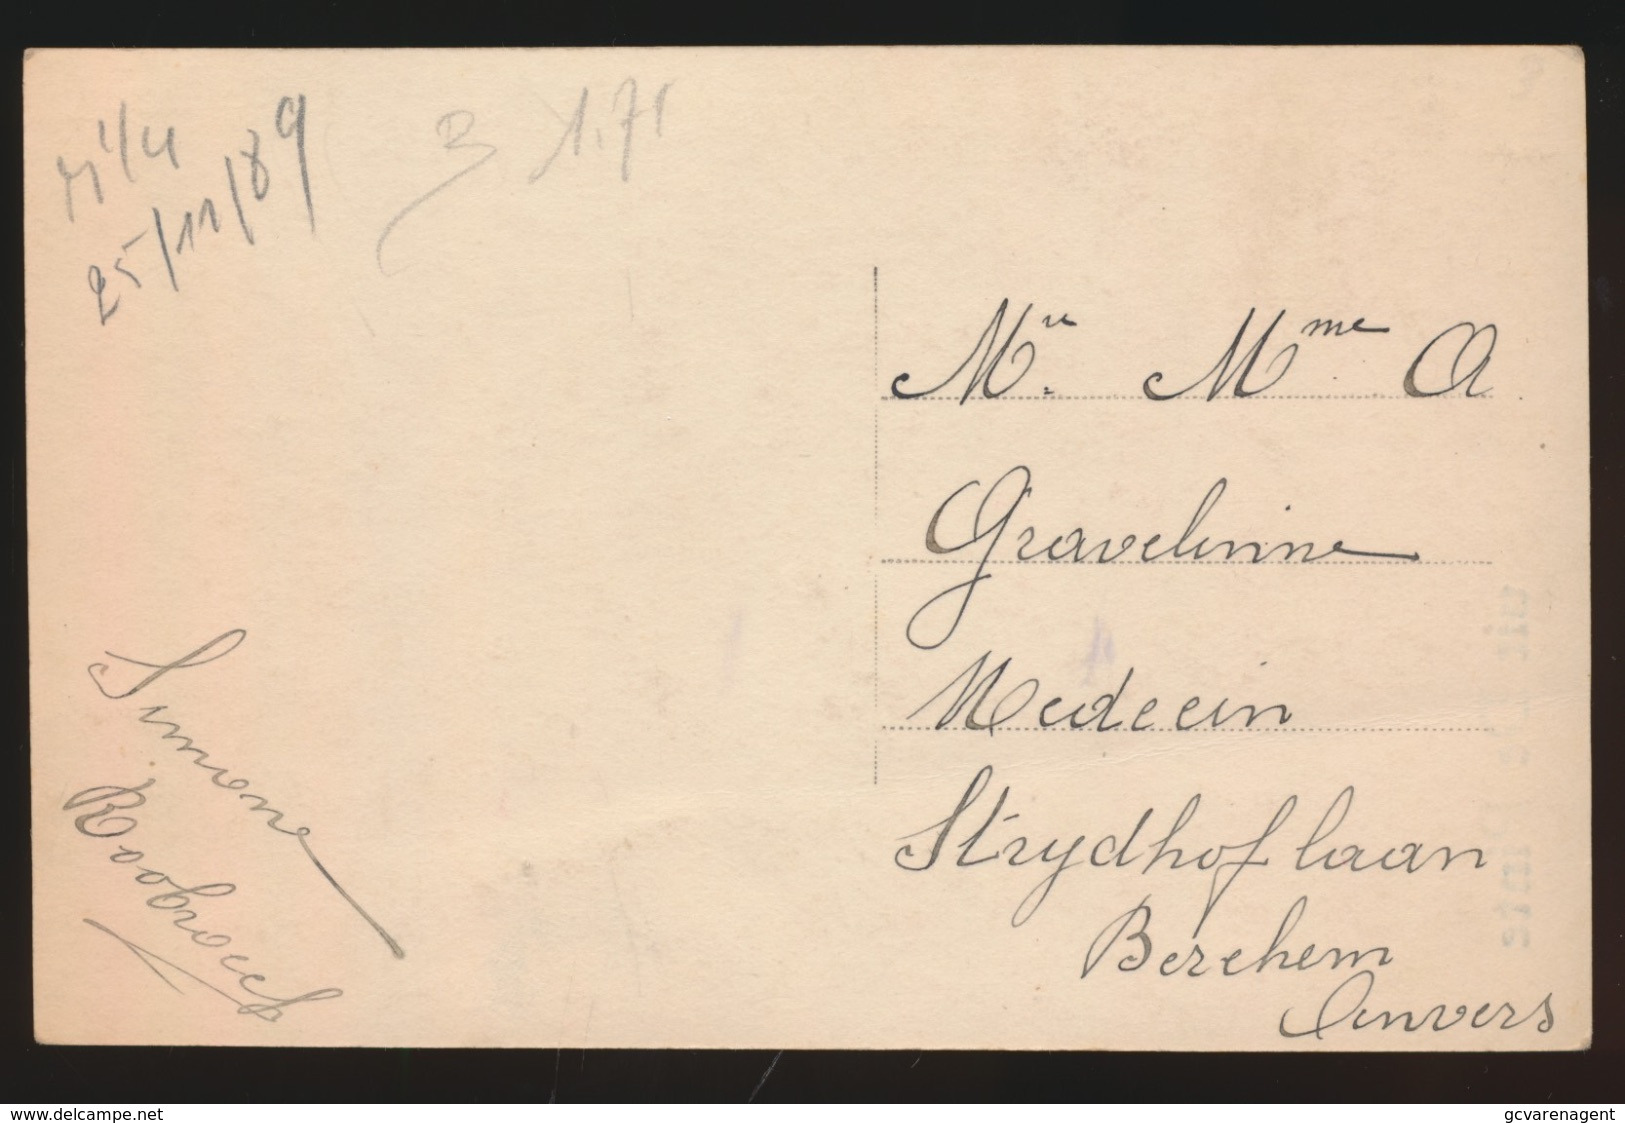 25/11/89
1.71
Mr. Mme A
Gravelinne
Medecin
Strydhoflaan
Berchem
Anvers
Simone
www.delcampe.net
gcvarenagent